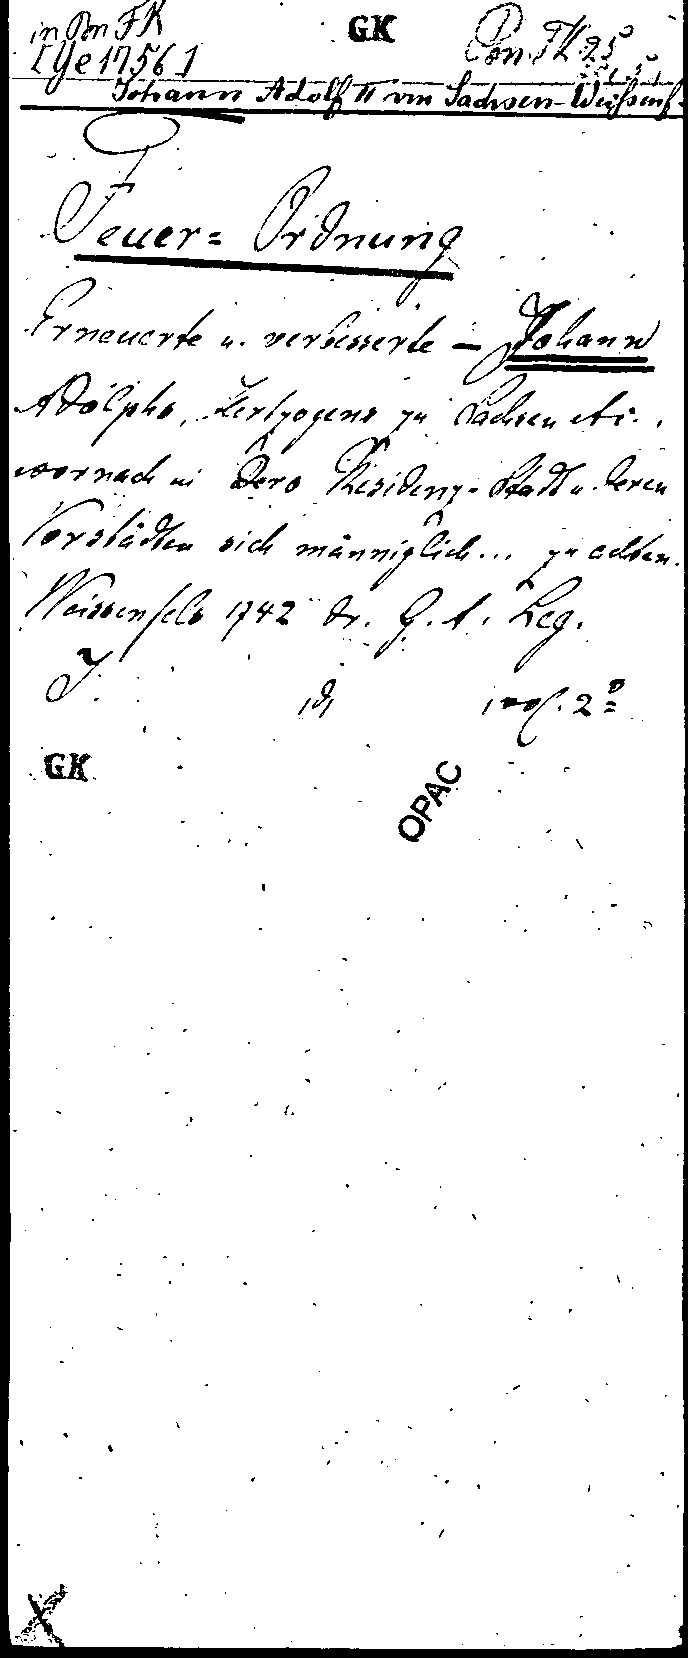 in Pon FK
LYe 1756 1
GK
Pon. FK 25
Johann Adolf II von Sachsen-Weißenf.
Feuer= Ordnung
Erneuerte u. verbesserte – Johann
Adolphs, Hertzogens zu Sachsen etc.,
wornach in Dero Residenz-Stadt u. deren
Vorstädten sich männiglich... zu achten.
Weissenfels 1742 dr. G. A. Leg.
1 vol. 2°
GK
OPAC
X